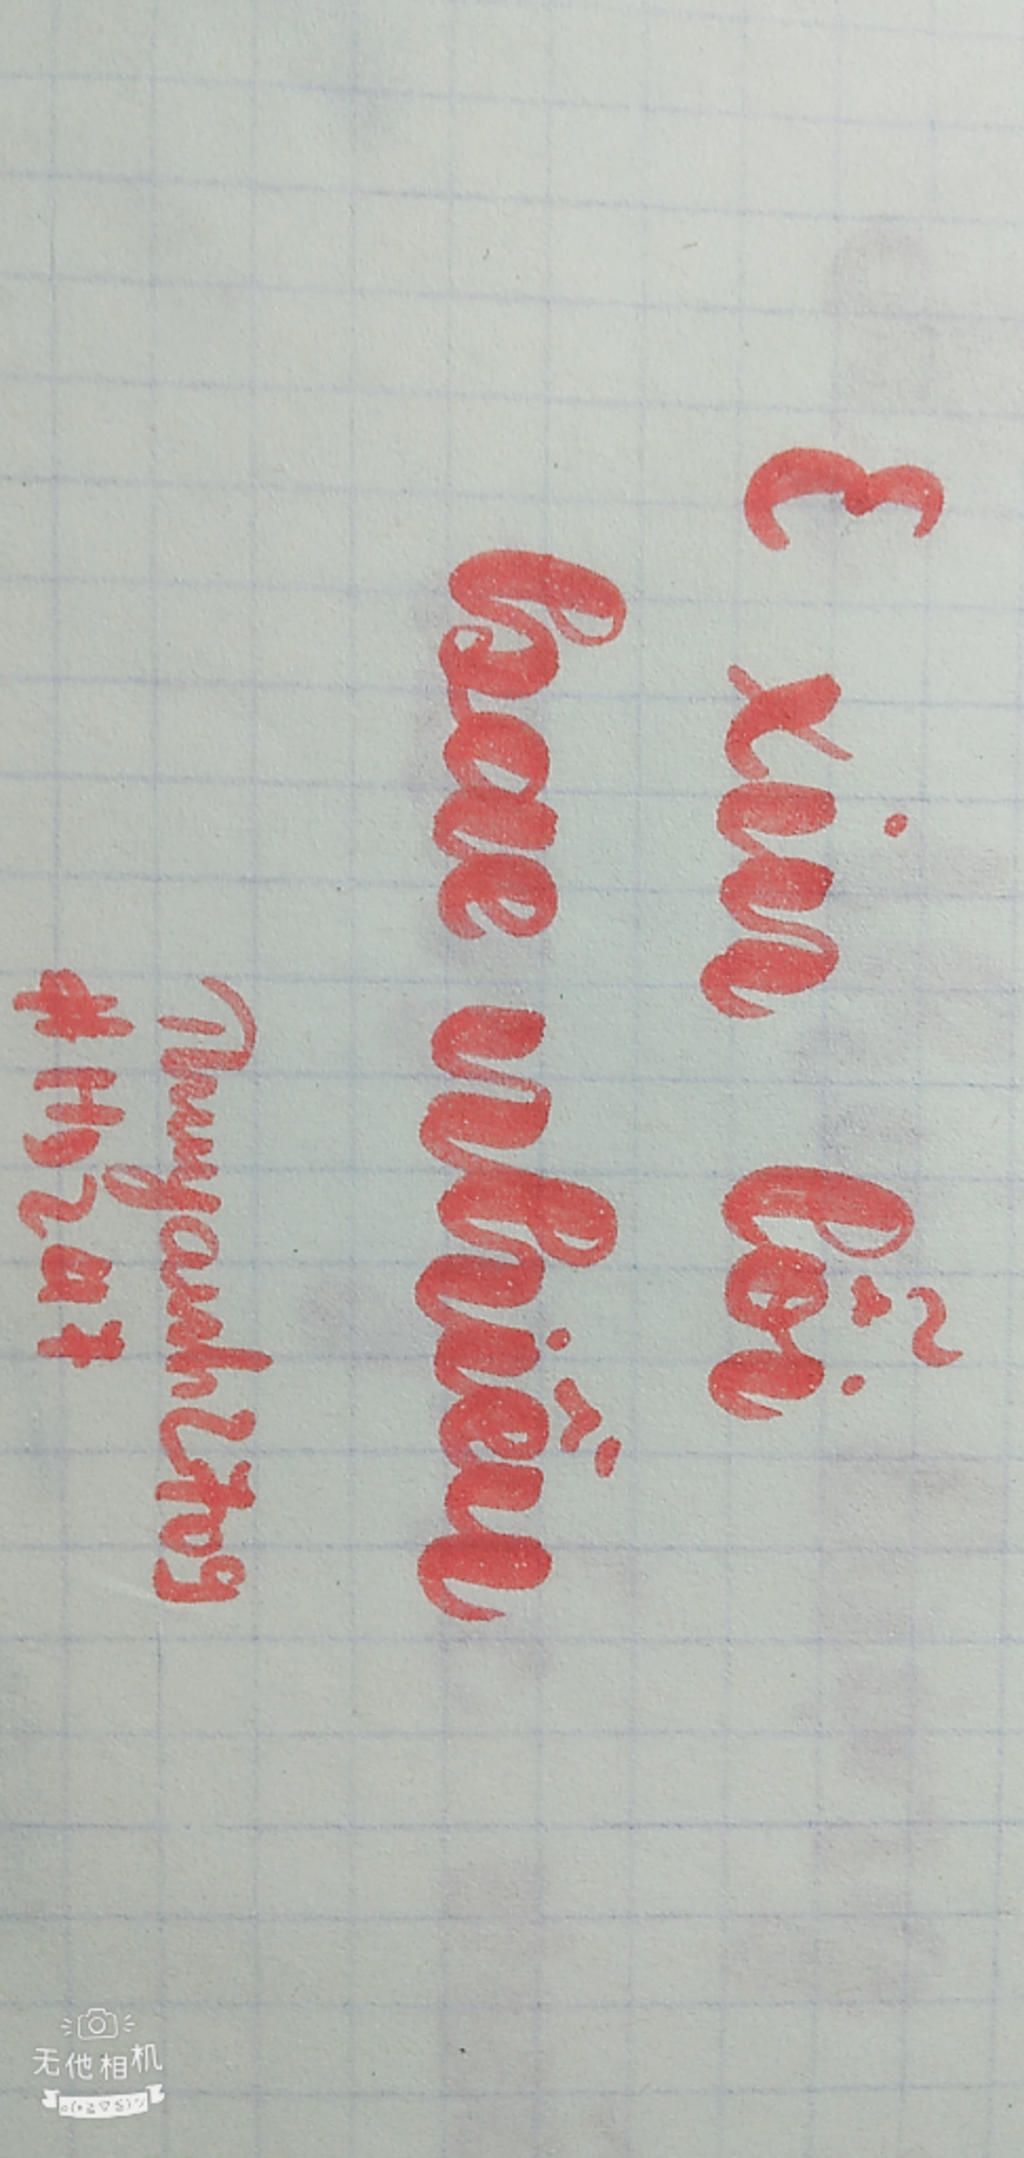 E xin lỗi
bae nhiều
Thuyanh2709
#Hs2at
无他相机